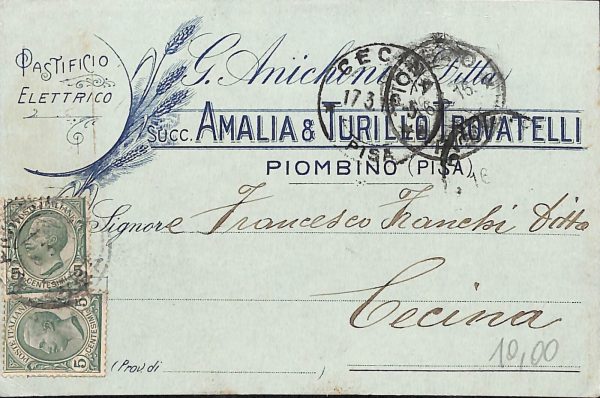 PASTIFICIO
ELETTRICO
G. Anichini Ditta
SUCC. AMALIA & TURILLO TROVATELLI
PIOMBINO (PISA)
CECINA
17.3
PISA
Signore Francesco Franchi Ditta
Cecina
10,00
(Prov. di
POSTE ITALIANE
5 CENTESIMI 5
POSTE ITALIANE
5 CENTESIMI 5